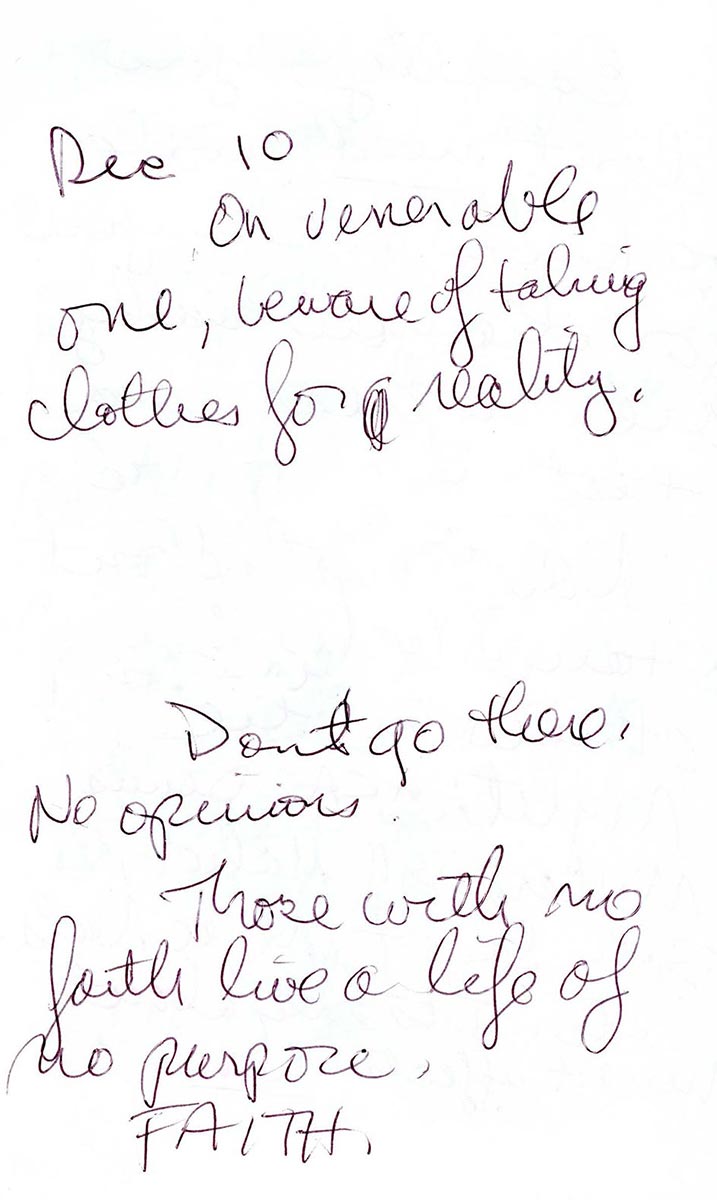 Dec 10
On venerable
one, beware of taking
clothes for reality.
Dont go there.
No opinions.
Those with no
faith live a life of
no purpose.
FAITH.